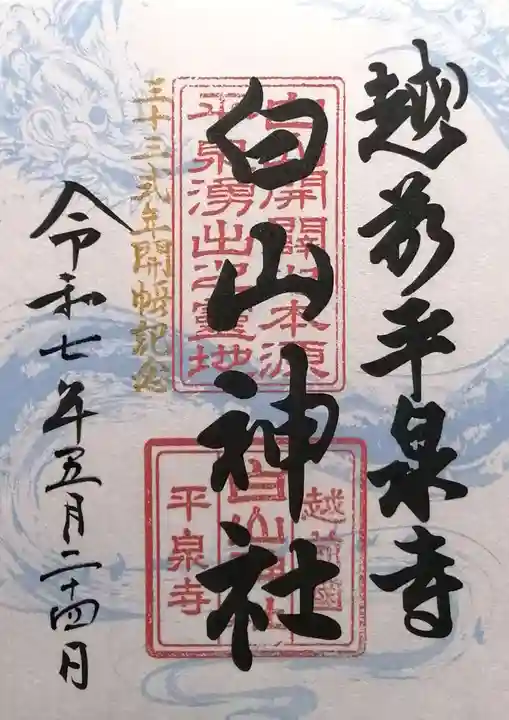 越前平泉寺
白山神社
平泉湧出之靈地
越前國
白山神社
平泉寺
三十三年式年開帳記念
令和七年五月二十四日